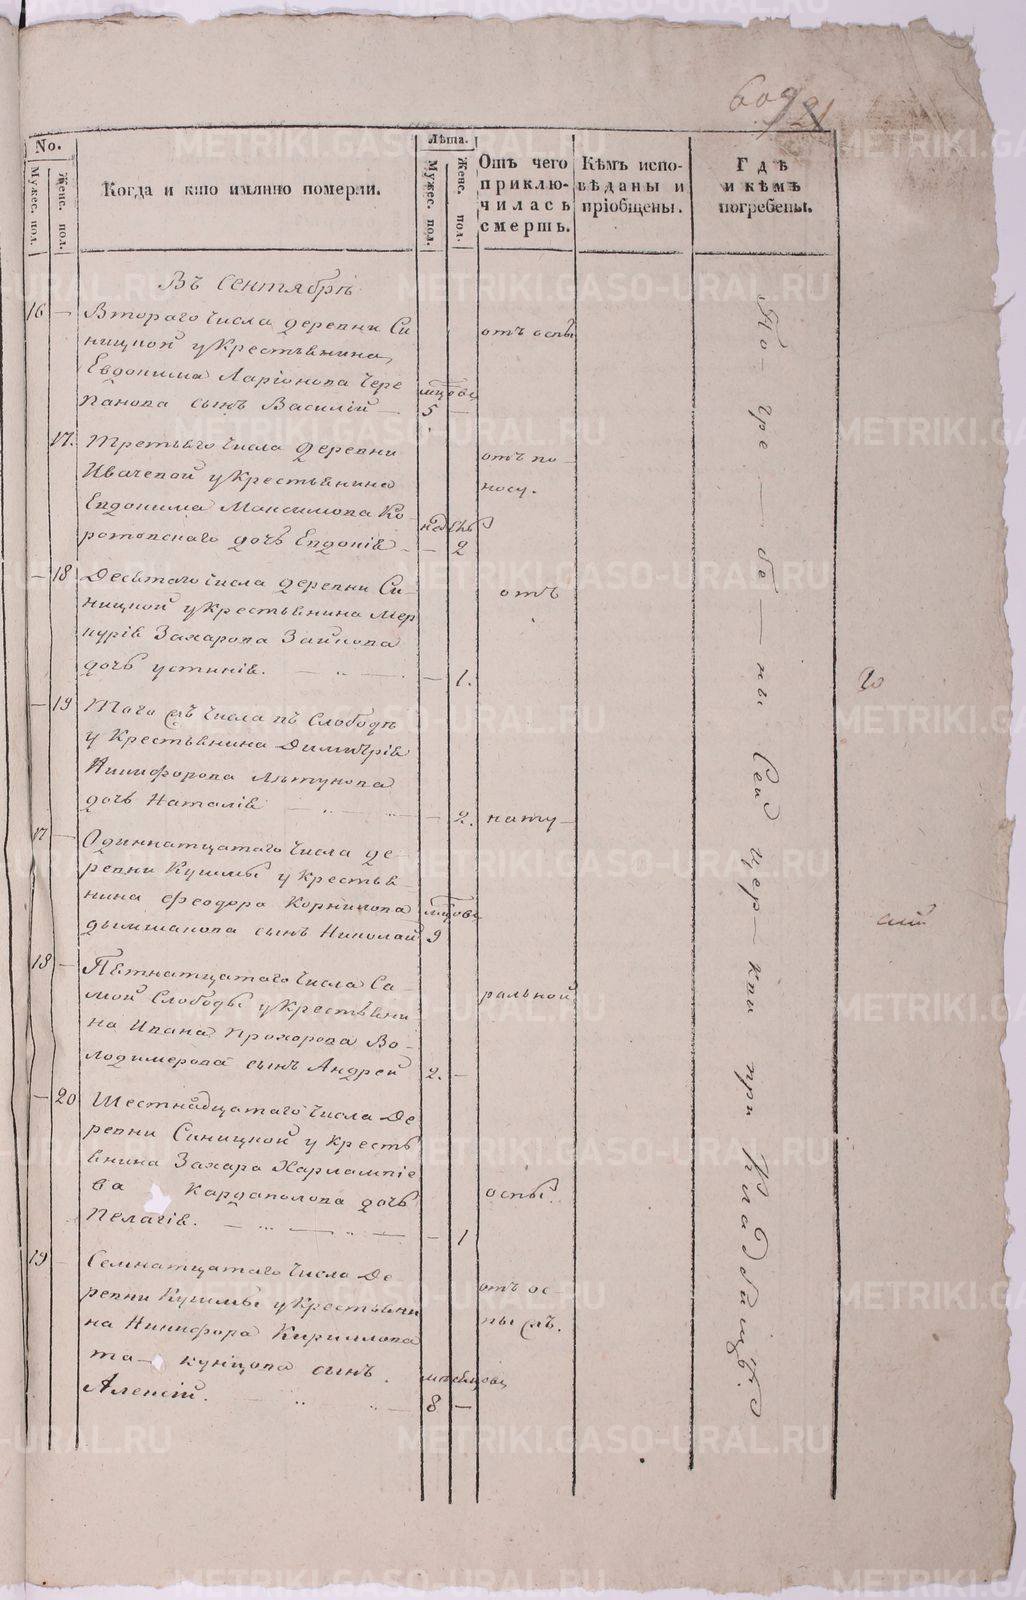 609
21
No.
Мужес. пол.
Женс. пол.
Когда и кто имянно померли.
Лѣта.
Мужес. пол.
Женс. пол.
Отъ чего приклю-чилась смерть.
Кѣмъ испо-вѣданы и пріобщены.
Гдѣ и кѣмъ погребены.
Въ Сентябрѣ
16 — Втораго числа деревни Си
ницной у крестьянина
Евдокима Ларіонова Чере
панова сынъ Василій — мцовъ 5 — отъ оспы
17. Третьяго числа деревни
Ивачевой у крестьянина
Евдокима Максимова Ко
ротовскаго дочь Евдокія — недѣль — 2 отъ по-
носу.
— 18 Десятаго числа деревни Си-
ницкой у крестьянина Мер
курія Захарова Заикова
дочь Устинія. — 1. отъ
— 19 Того жъ числа въ Слободѣ
у крестьянина Димитрія
Никифорова
дочь Наталія — 2. нату-
17 — Одиннатцатаго числа де-
ревни Кушмы у крестья-
нина Феодора Корнилова
дымшакова сынъ Николай мцовъ 9
18 — Пятнатцатаго числа Са-
мой Слободы у крестьяни
на Ивана Прохорова Во-
лодимерова сынъ Андрей 2. — ральной
— 20 Шестнадцатаго числа де
ревни Синицкой у кресть
янина Захара Харлампіе
ва Кардаполова дочь
Пелагія. — 1 оспы.
19 — Семнатцатаго числа де
ревни Кушмы у крестьяни
на Никифора Кириллова
та-кунцова сынъ
Алексій. мѣсяцовъ 8 — отъ ос
пы жъ.
По-гре-бе-ны Сей цер-кви при Кладбищѣ
METRIKI.GASO-URAL.RU